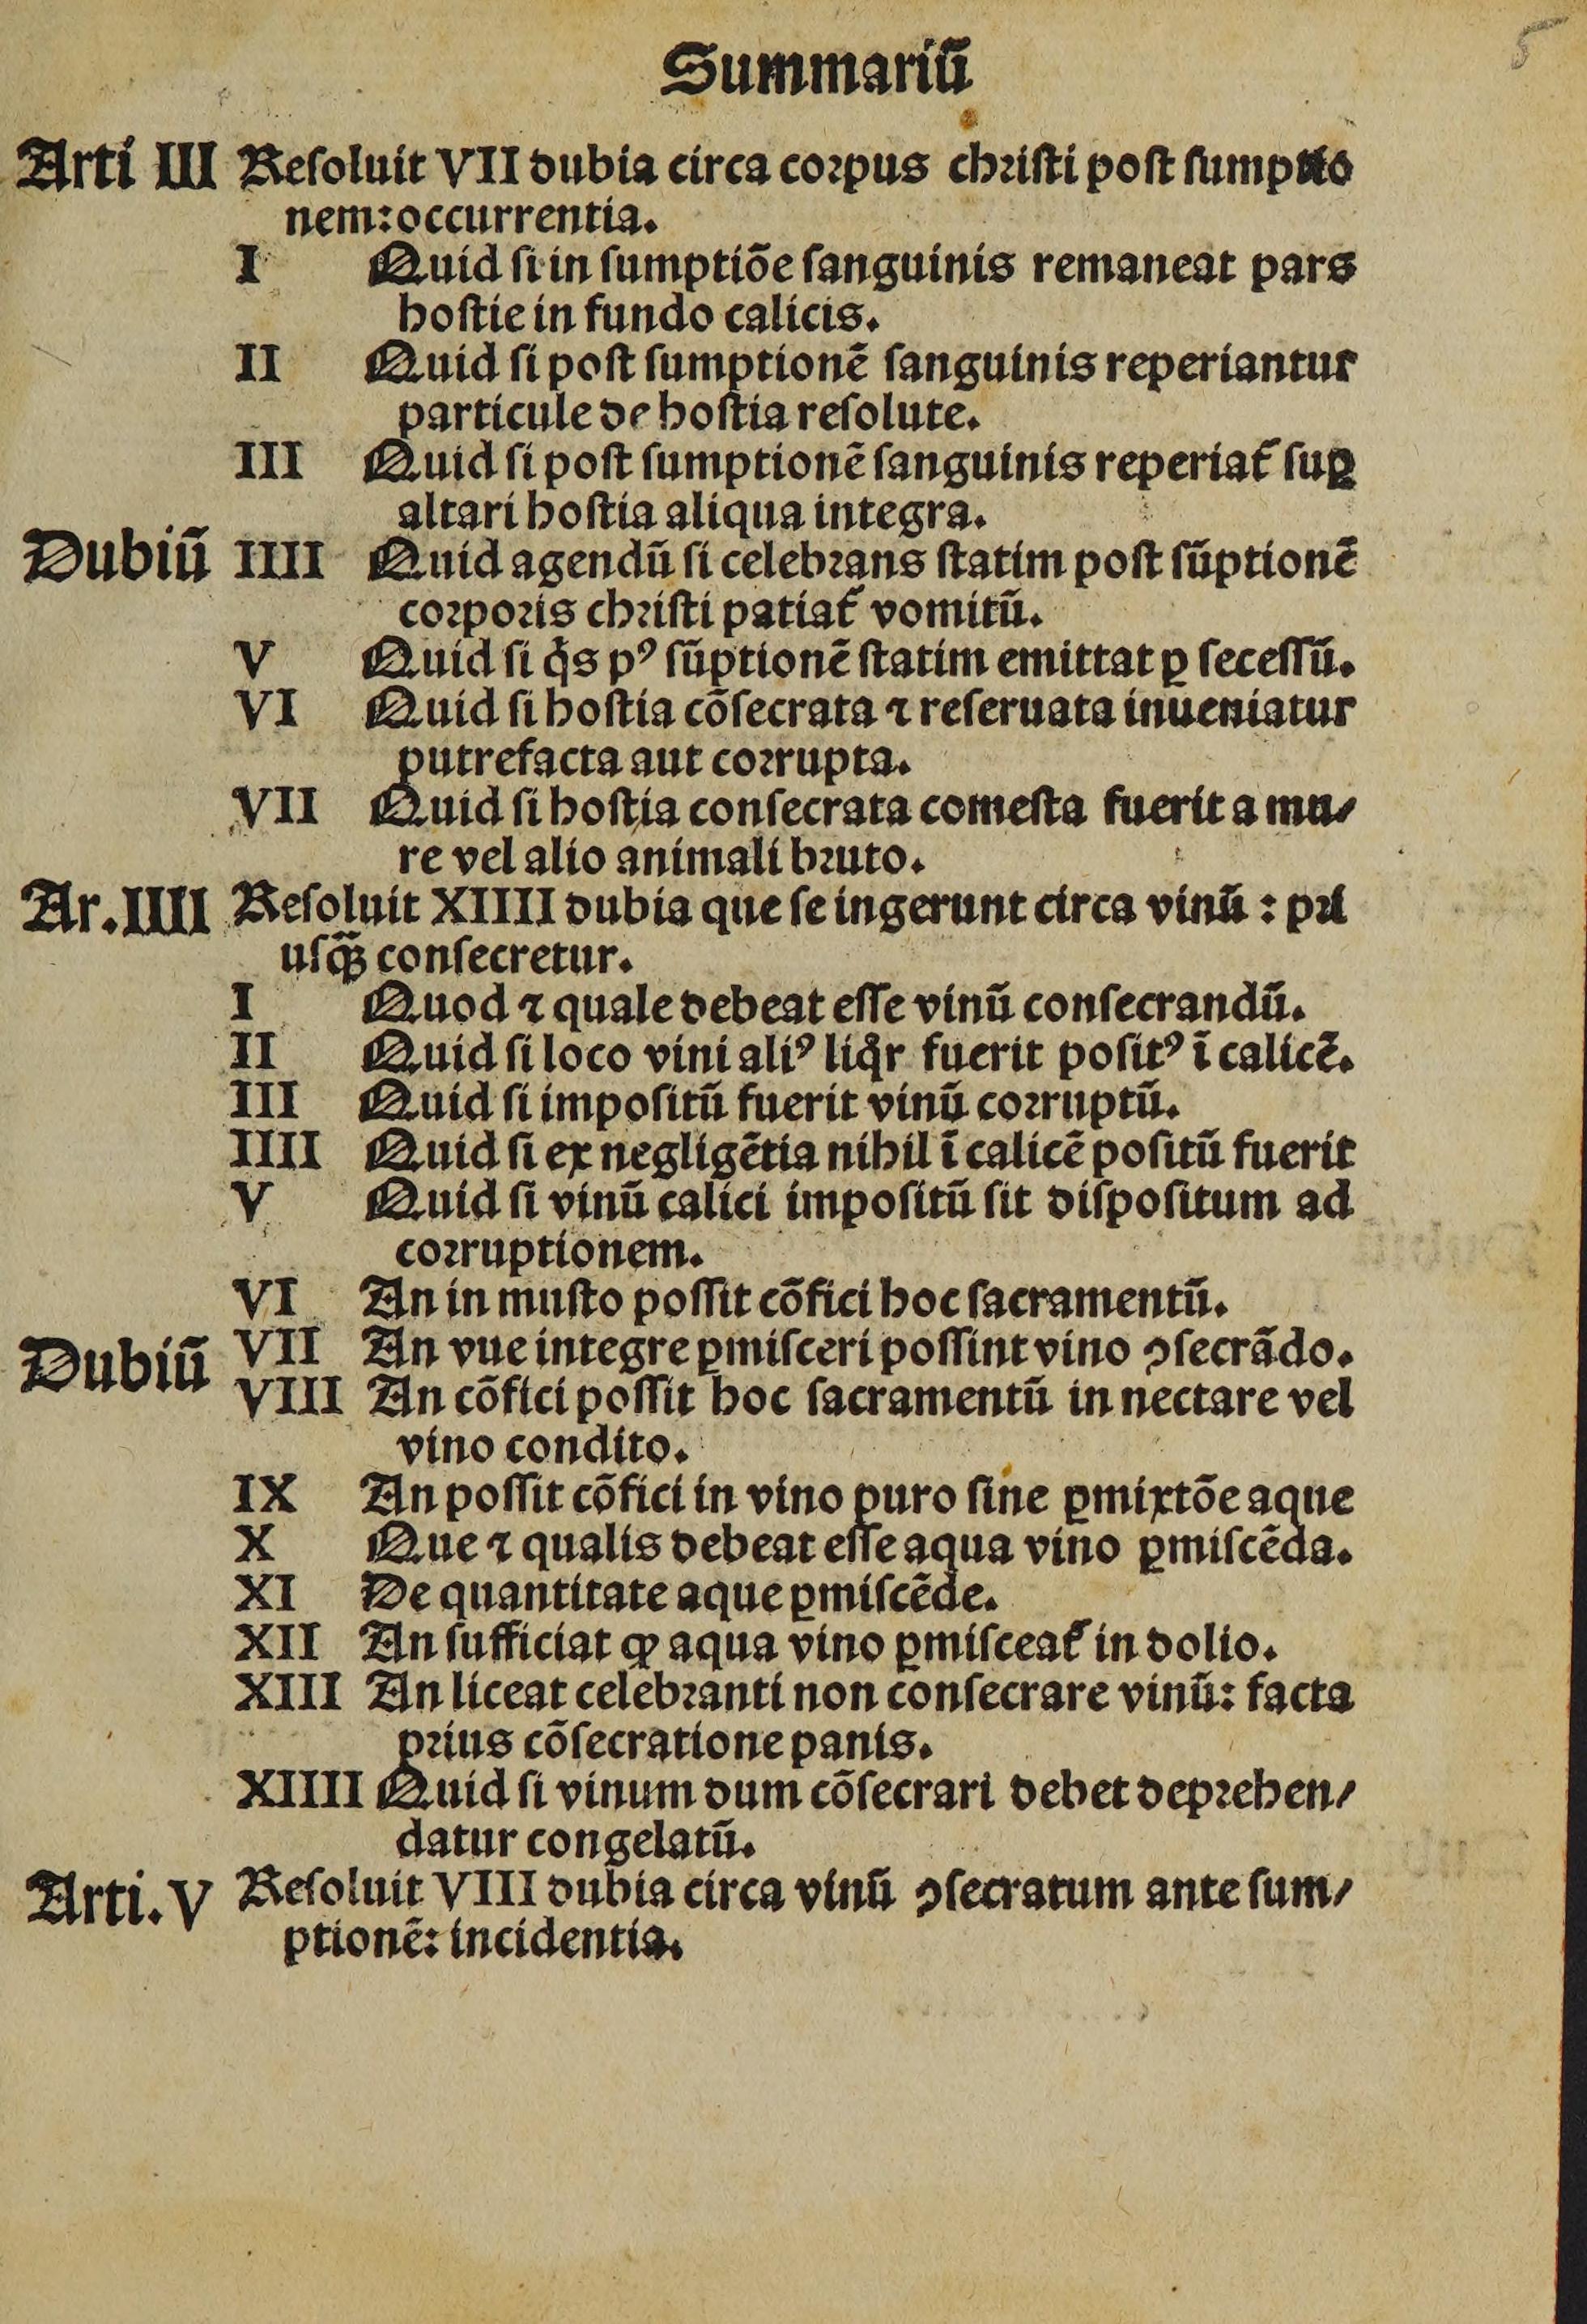 Summariū
5
Arti III Reſoluit VII dubia circa corpus chriſti poſt ſumptio
nem: occurrentia.
I Quid ſi in ſumptiōe ſanguinis remaneat pars
hoſtie in fundo calicis.
II Quid ſi poſt ſumptionē ſanguinis reperiantur
particule de hoſtia reſolute.
III Quid ſi poſt ſumptionē ſanguinis reperiat᷑ ſuꝑ
altari hoſtia aliqua integra.
Dubiū IIII Quid agendū ſi celebrans ſtatim poſt ſūptionē
corporis chriſti patiat᷑ vomitū.
V Quid ſi qͥs pꝰ ſūptionē ſtatim emittat ꝑ ſeceſſū.
VI Quid ſi hoſtia cōſecrata ⁊ reſeruata inueniatur
putrefacta aut corrupta.
VII Quid ſi hoſtia conſecrata comeſta fuerit a mu⸗
re vel alio animali bruto.
Ar. IIII Reſoluit XIIII dubia que ſe ingerunt circa vinū : pri
uſqꝫ̄ conſecretur.
I Quod ⁊ quale debeat eſſe vinū conſecrandū.
II Quid ſi loco vini aliꝰ liqͦr fuerit poſitꝰ ī calicē.
III Quid ſi impoſitū fuerit vinū corruptū.
IIII Quid ſi ex negligētia nihil ī calicē poſitū fuerit
V Quid ſi vinū calici impoſitū ſit diſpoſitum ad
corruptionem.
VI An in muſto poſſit cōfici hoc ſacramentū.
Dubiū VII An vue integre ꝑmiſceri poſſint vino ꝯſecrādo.
VIII An cōfici poſſit hoc ſacramentū in nectare vel
vino condito.
IX An poſſit cōfici in vino puro ſine ꝑmixtōe aque
X Que ⁊ qualis debeat eſſe aqua vino ꝑmiſcēda.
XI De quantitate aque ꝑmiſcēde.
XII An ſufficiat ꝙ aqua vino ꝑmiſceat᷑ in dolio.
XIII An liceat celebranti non conſecrare vinū: facta
prius cōſecratione panis.
XIIII Quid ſi vinum dum cōſecrari debet deprehen⸗
datur congelatū.
Arti. V Reſoluit VIII dubia circa vinū ꝯſecratum ante ſum⸗
ptionē: incidentia.